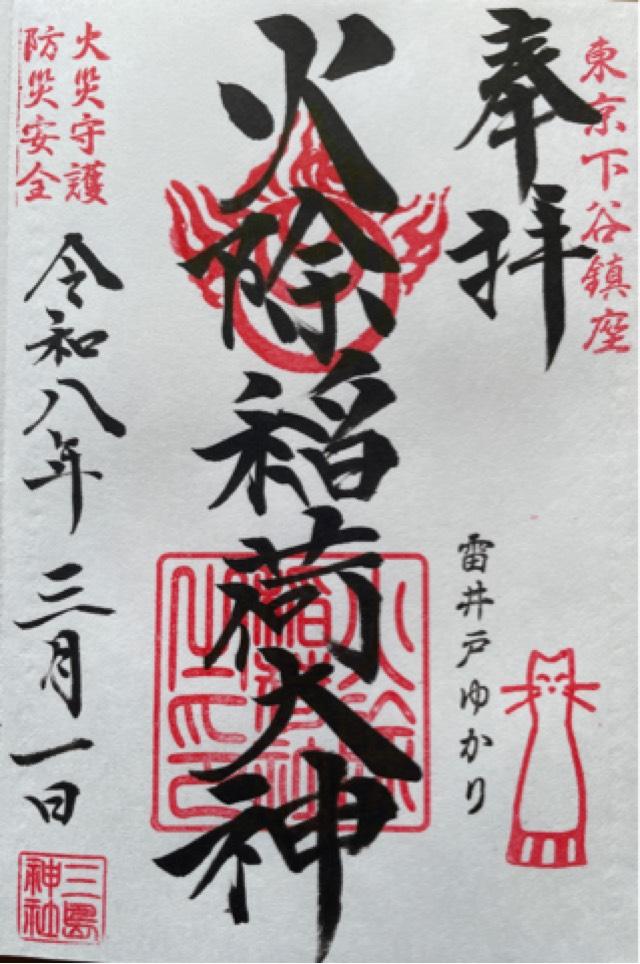 東京下谷鎮座
奉拝
火除稲荷大神
雷井戸ゆかり
火災守護
防災安全
令和八年三月一日
三島
神社